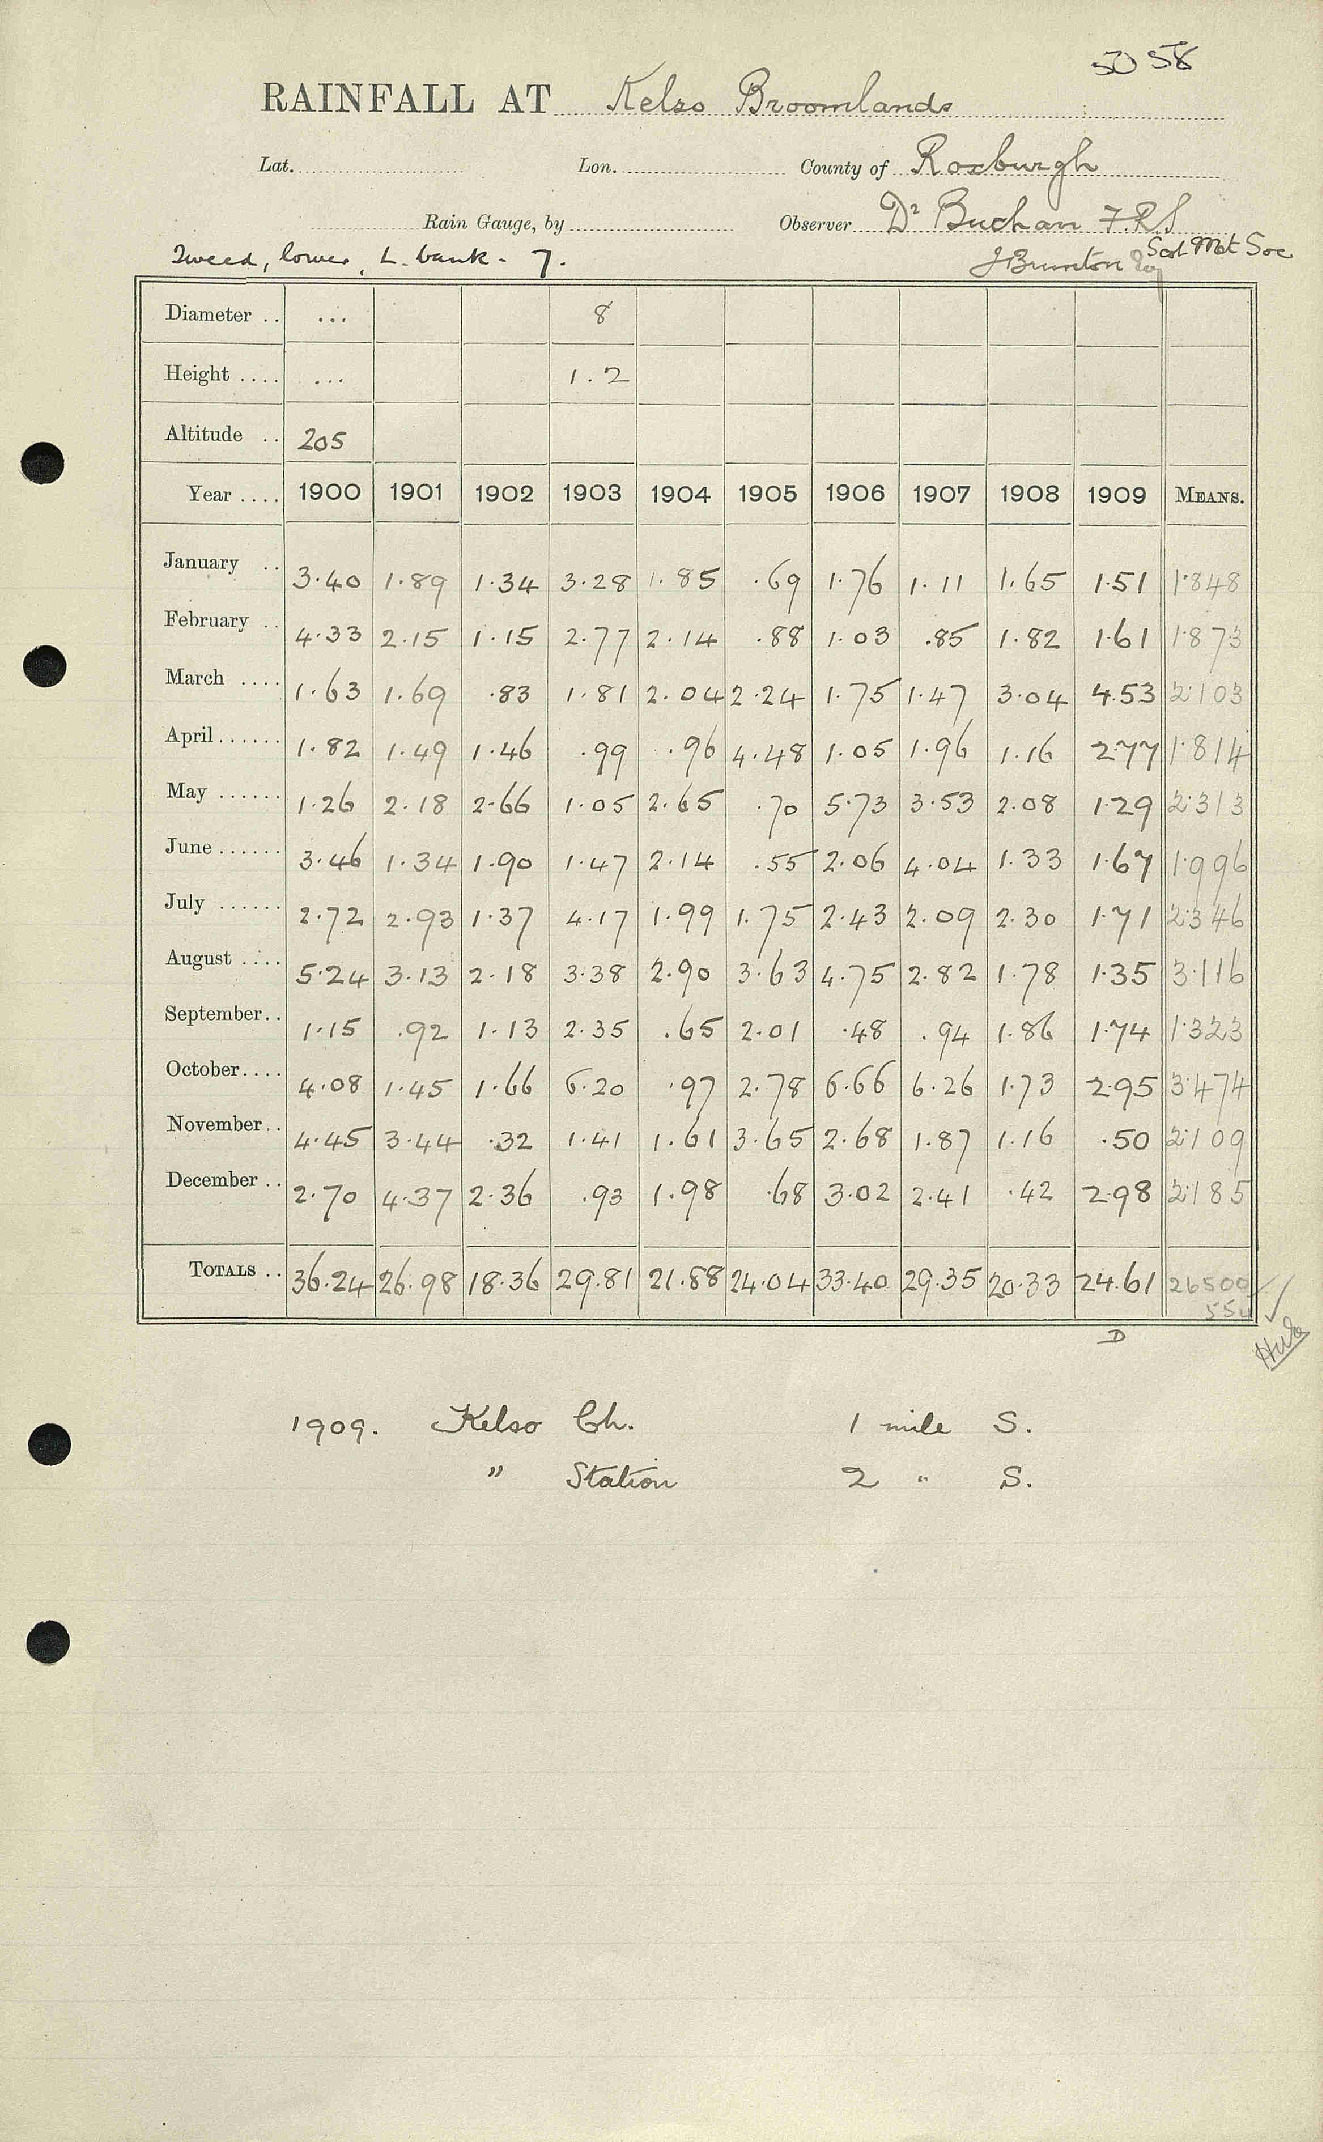 5058
RAINFALL AT Kelso Broomlands
Lat. Lon. County of Roxburgh
Rain Gauge, by Observer Dr Buchan F.R.S
Tweed, lower, L. bank. 7. J Brunton Esq Scot Met Soc
Diameter .. ... 8
Height .... ... 1.2
Altitude .. 205
Year .... 1900 1901 1902 1903 1904 1905 1906 1907 1908 1909 MEANS.
January .. 3.40 1.89 1.34 3.28 1.85 .69 1.76 1.11 1.65 1.51 1.848
February .. 4.33 2.15 1.15 2.77 2.14 .88 1.03 .85 1.82 1.61 1.873
March .... 1.63 1.69 .83 1.81 2.04 2.24 1.75 1.47 3.04 4.53 2.103
April...... 1.82 1.49 1.46 .99 .96 4.48 1.05 1.96 1.16 2.77 1.814
May ...... 1.26 2.18 2.66 1.05 2.65 .70 5.73 3.53 2.08 1.29 2.313
June ...... 3.46 1.34 1.90 1.47 2.14 .55 2.06 4.04 1.33 1.67 1.996
July ...... 2.72 2.93 1.37 4.17 1.99 1.75 2.43 2.09 2.30 1.71 2.346
August .... 5.24 3.13 2.18 3.38 2.90 3.63 4.75 2.82 1.78 1.35 3.116
September.. 1.15 .92 1.13 2.35 .65 2.01 .48 .94 1.86 1.74 1.323
October.... 4.08 1.45 1.66 6.20 .97 2.78 6.66 6.26 1.73 2.95 3.474
November.. 4.45 3.44 .32 1.41 1.61 3.65 2.68 1.87 1.16 .50 2.109
December .. 2.70 4.37 2.36 .93 1.98 .68 3.02 2.41 .42 2.98 2.185
TOTALS .. 36.24 26.98 18.36 29.81 21.88 24.04 33.40 29.35 20.33 24.61 26500
D
1909. Kelso Ch. 1 mile S.
" Station 2 " S.